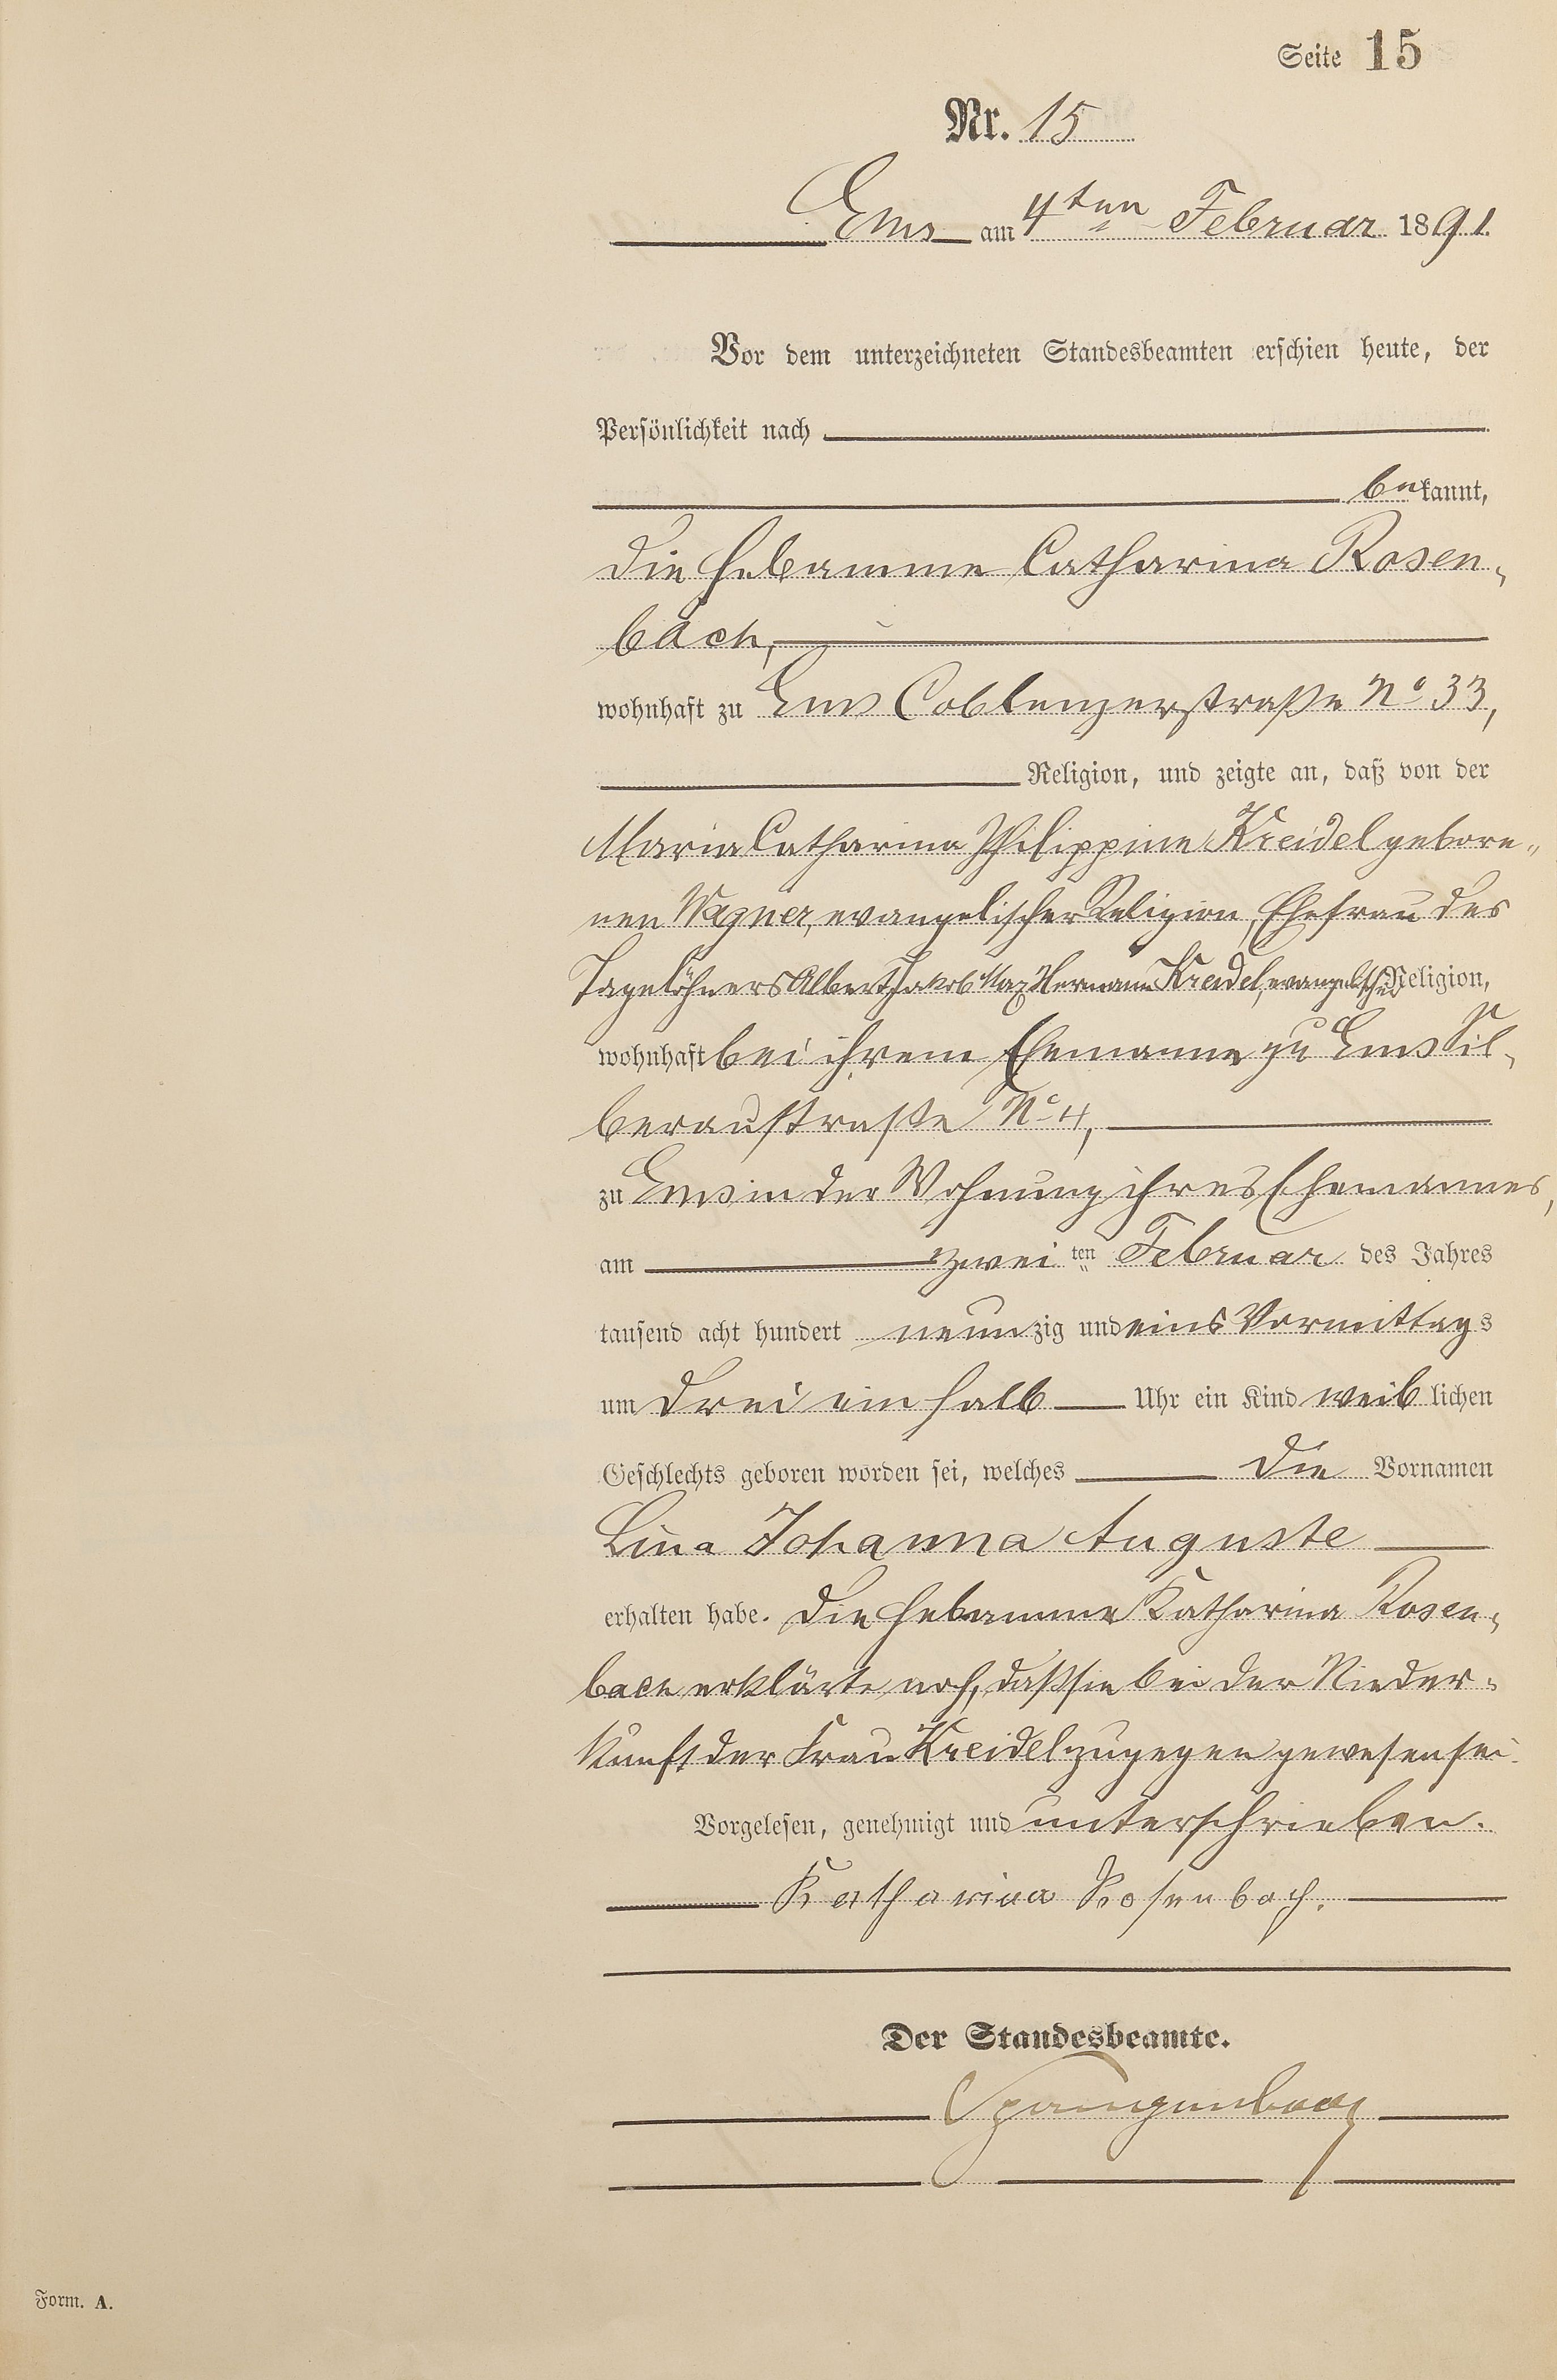 Seite 15
Nr. 15
Ems am 4ten Februar 1891.
Vor dem unterzeichneten Standesbeamten erschien heute, der
Persönlichkeit nach
bekannt,
die Hebamme Catharina Rosen-
bach,
wohnhaft zu Ems Coblenzerstraße No 33,
Religion, und zeigte an, daß von der
Maria Catharina Philippine Kreidel gebore-
nen Wagner, evangelischer Religion, Ehefrau des
Tagelöhners Albert Jakob Max Hermann Kreidel, evangelischer Religion,
wohnhaft bei ihrem Ehemanne zu Ems Sil-
beraustraße No 4,
zu Ems in der Wohnung ihres Ehemannes,
am zweiten Februar des Jahres
tausend acht hundert neunzig und eins Vormittags
um drei ein halb Uhr ein Kind weiblichen
Geschlechts geboren worden sei, welches die Vornamen
Lina Johanna Auguste
erhalten habe. Die Hebamme Katharina Rosen-
bach erklärte noch, daß sie bei der Nieder-
kunft der Frau Kreidel zugegen gewesen sei.
Vorgelesen, genehmigt und unterschrieben.
Katharina Rosenbach.
Der Standesbeamte.
Spangenberg
Form. A.